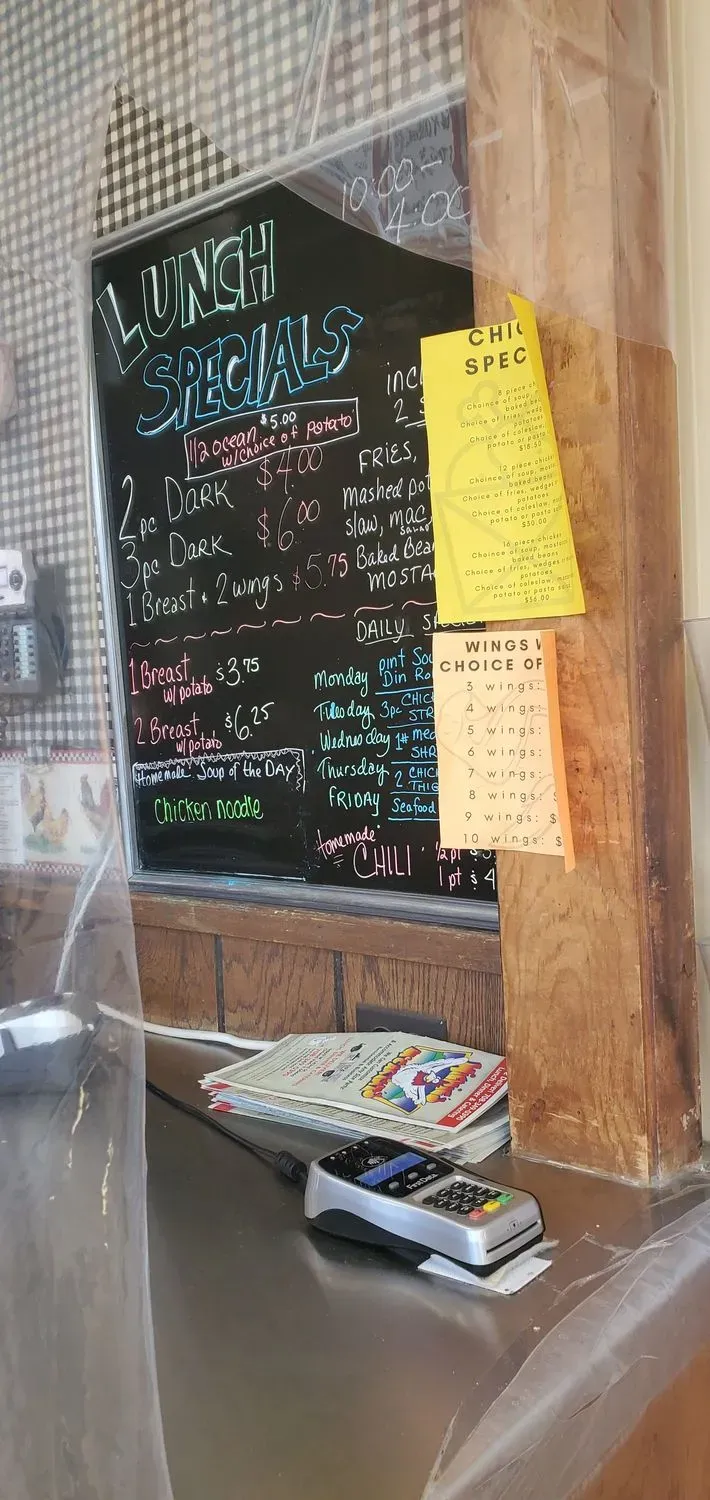 10:00 –
4:00
LUNCH
SPECIALS
$5.00
1/2 ocean
w/choice of Potato
2pc DARK $4.00
3pc DARK $6.00
1 Breast + 2 wings $5.75
1 Breast $3.75
w/potato
2 Breast $6.25
w/potato
Homemade Soup of the DAY
Chicken noodle
incl
2 S
FRIES,
mashed pot
slaw, mac
Baked Bea
MOSTA
DAILY SPECI
Monday pint Sou
Din Ro
Tuesday 3pc CHIC
STR
Wednesday 1# med
SHR
Thursday 2 CHIC
THIG
FRIDAY Seafood
Homemade
CHILI 1/2 pt $3
1 pt $4
CHIC
SPEC
8 piece ch
Choince of soup,
baked be
Choice of fries, wedg
potatoes
Choice of coleslaw,
potato or pasta
$18.50
12 piece chicke
Choince of soup, mos
baked beans
Choice of fries, wedges
potatoes
Choice of coleslaw, ma
potato or pasta s
$30.00
16 piece chicke
Choince of soup, mostac
baked beans
Choice of fries, wedges
potatoes
Choice of coleslaw, maca
potato or pasta sal
$36.00
WINGS W
CHOICE OF
3 wings:
4 wings:
5 wings:
6 wings:
7 wings:
8 wings: $
9 wings: $
10 wings: $
Lunch, Dinner & Catering
First Data